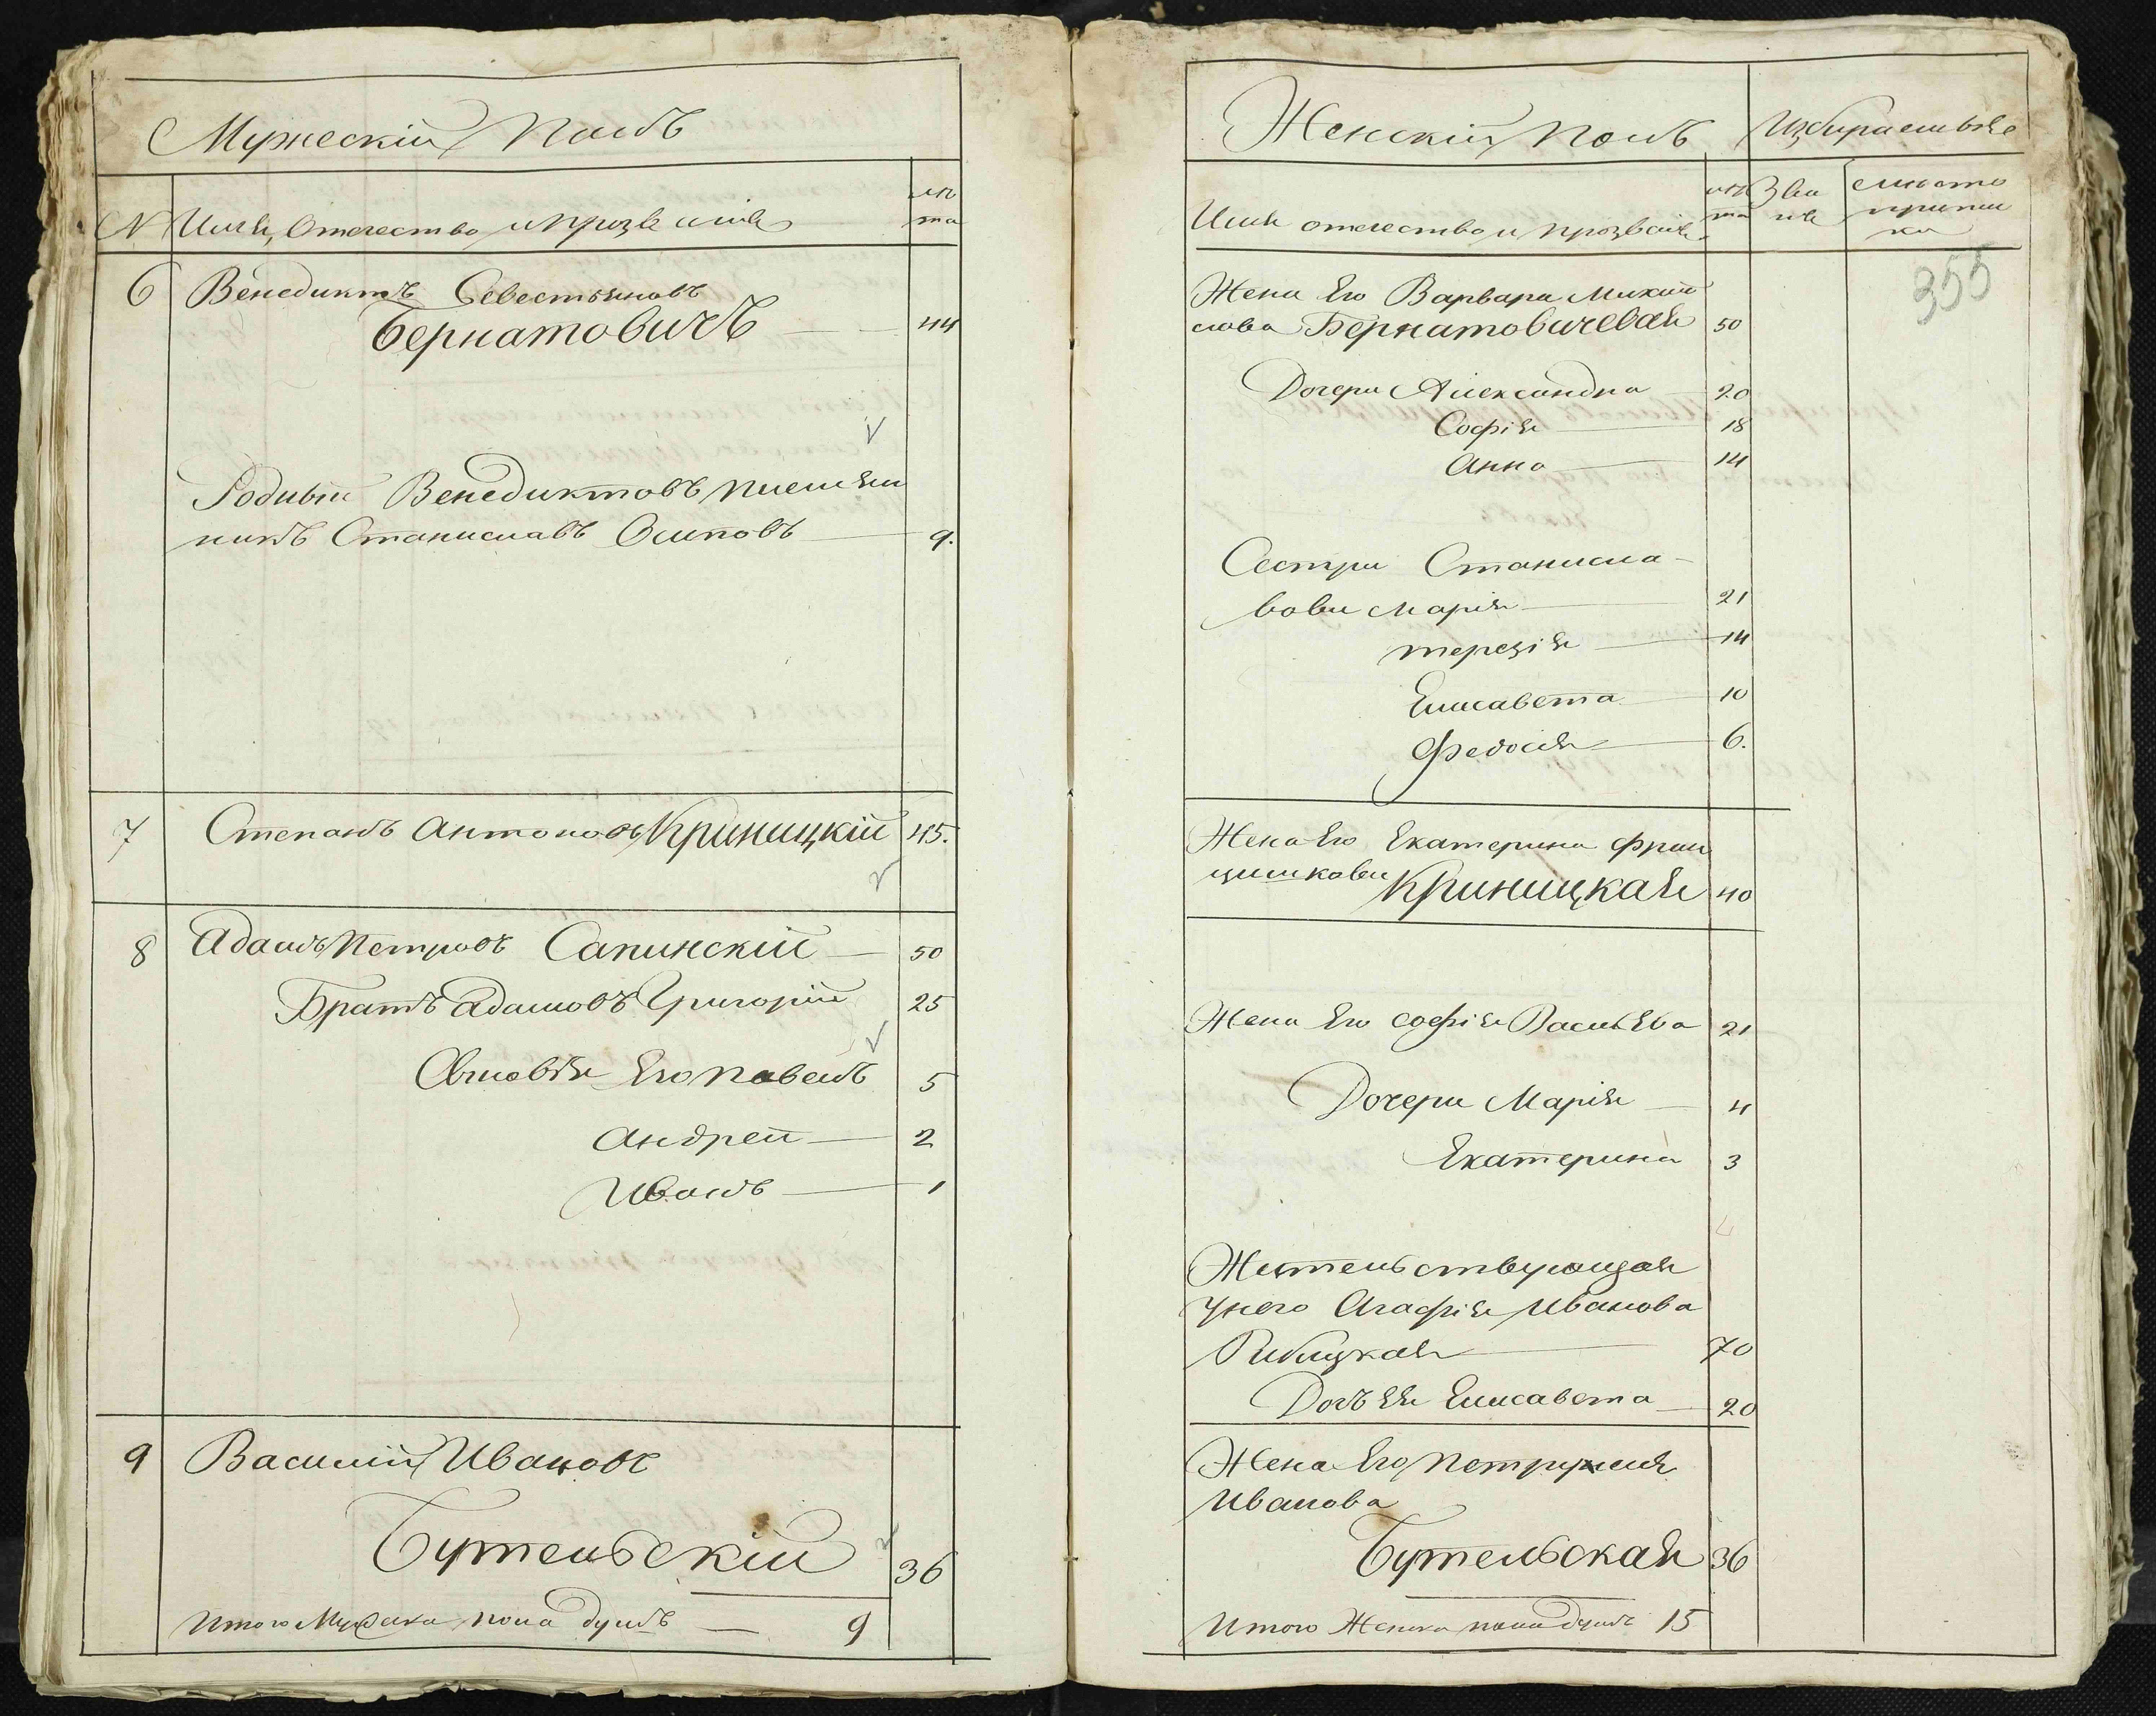 Мужескій Полъ
№ Имя, Отечество и прозваніе
лѣ
та
6 Венедиктъ Севестьяновъ
Бернатовичъ 44
Родный Венедиктовъ племян
никъ Станиславъ Осиповъ 9.
7 Степанъ Антоновъ Криницкій 45.
8 Адамъ Петровъ Сапинскій 50
Братъ Адамовъ Григорій 25
Сыновья Его Павелъ 5
Андрей 2
Иванъ 1
9 Василій Ивановъ
Бутельскій 36
Итого Мужеска пола душъ 9
Женскій Полъ
Имя отечество и прозваніе
лѣ
та
Зва
ніе
355
Жена Его Варвара Михай
лова Бернатовичевая 50
Дочери Александра 20
Софія 18
Анна 14
Сестры Станисла-
вовы Марія 21
Терезія 14
Елисавета 10
Федосія 6.
Жена Его Екатерина Фран
цишкова
Криницкая 40
Жена Его Софія Васильева 21
Дочери Марія 4
Екатерина 3
Жительствующая
у него Агафія Иванова
Рибицкая 70
Дочь Ея Елисавета 20
Жена Его Петрунеля
Иванова
Бутельская 36
Итого Женска пола душъ 15